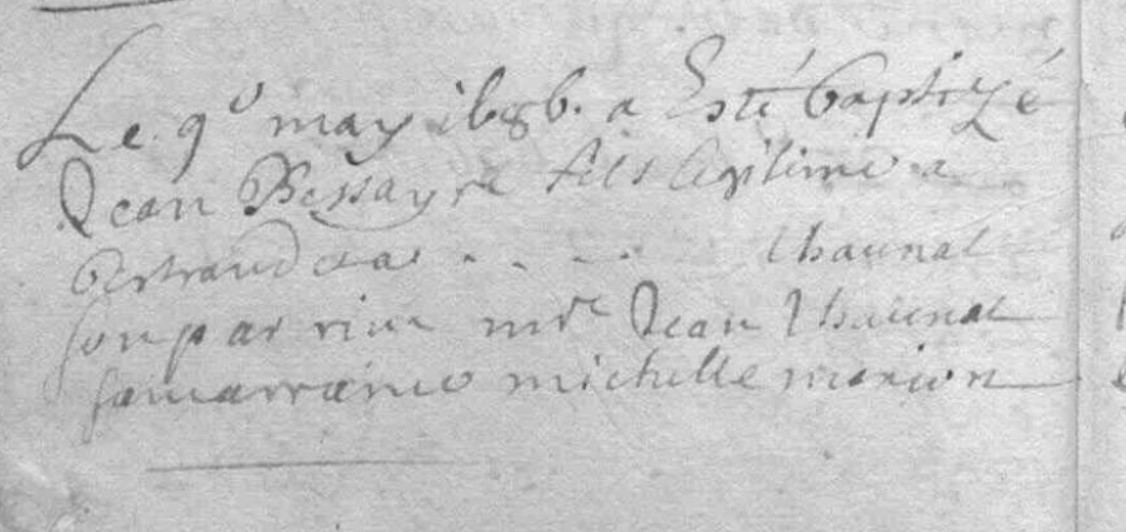 Le 9e may 1686. a Esté baptizé
Jean Bessayre fils legitime a
Bertrand et a . . . . . Lhaunal
son parrin mre Jean Lhaunal
sa marraine michelle marion